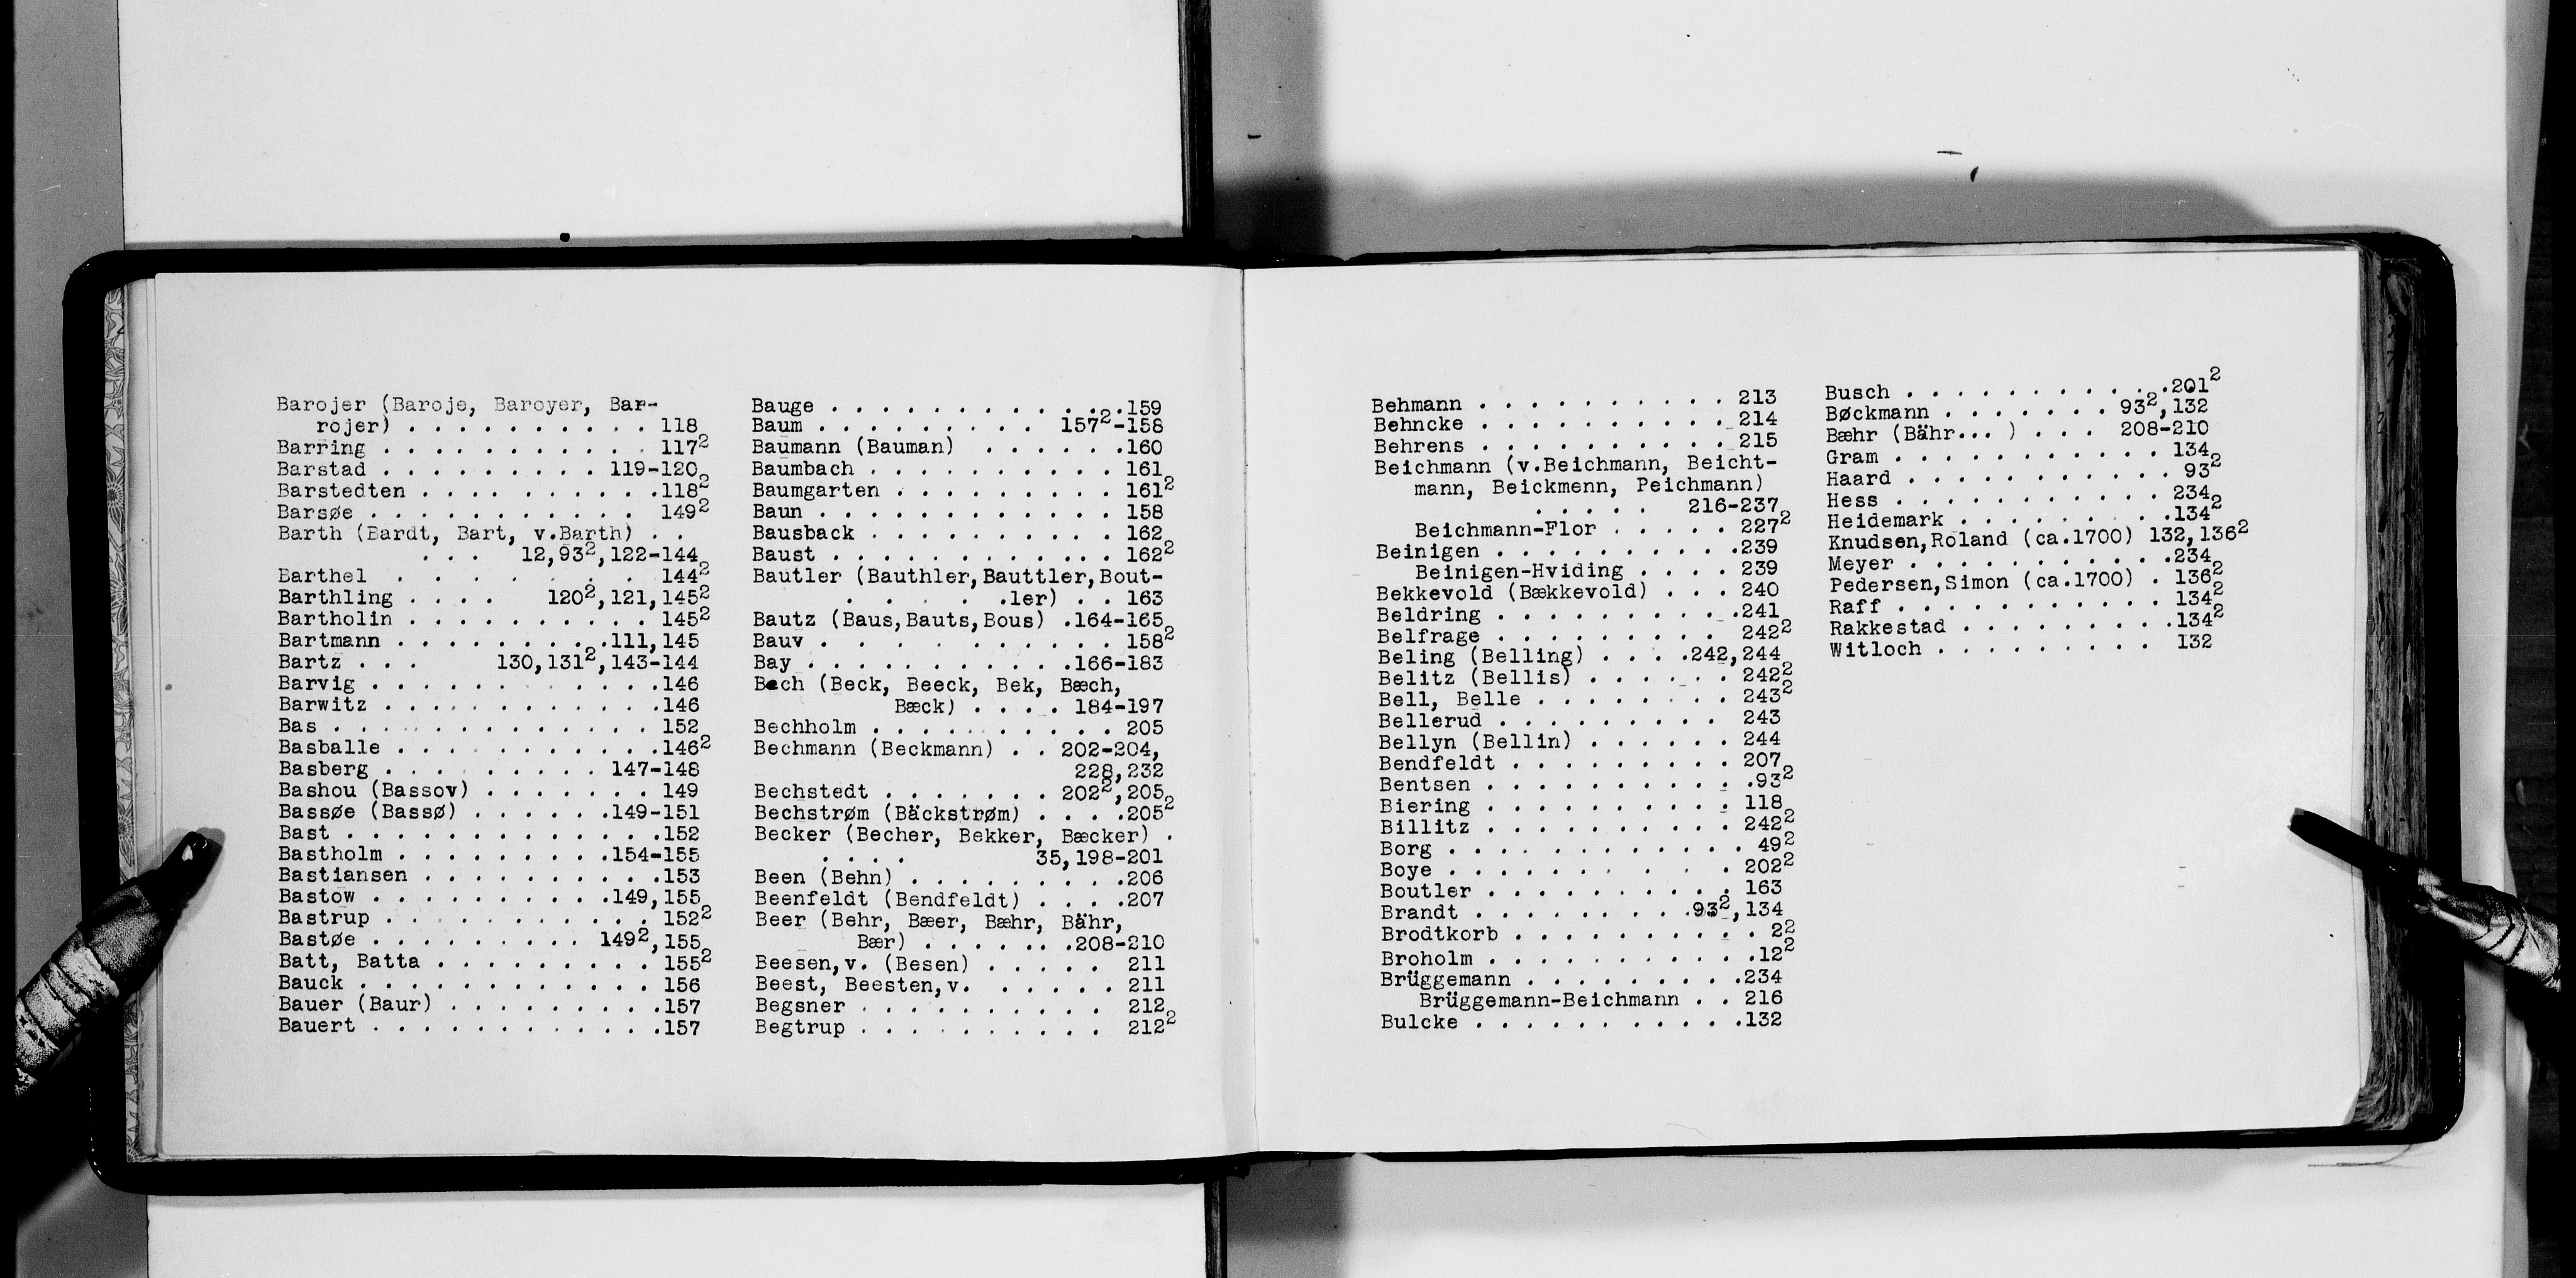 Barojer (Baroje, Baroyer, Bar-
rojer) . . . . . . . . . . 118
Barring . . . . . . . . . . . . 117²
Barstad . . . . . . . . . . 119-120
Barstedten . . . . . . . . . . .118²
Barsøe . . . . . . . . . . . . 149²
Barth (Bardt, Bart, v.Barth) . .
. . . 12,93²,122-144
Barthel . . . . . . . . 144²
Barthling . . . . 120²,121,145²
Bartholin . . . . . . . . . . 145²
Bartmann . . . . . . . . . .111,145
Bartz . . . 130,131²,143-144
Barvig . . . . . . . . . . . . .146
Barwitz . . . . . . . . . . . .146
Bas . . . . . . . . . . . . . . 152
Basballe . . . . . . . . . . . .146²
Basberg . . . . . . . . . . 147-148
Bashou (Bassov) . . . . . . . . 149
Bassøe (Bassø) . . . . . .149-151
Bast . . . . . . . . . . . . . .152
Bastholm . . . . . . . . . .154-155
Bastiansen . . . . . . . . . . .153
Bastow . . . . . . . . . . .149,155
Bastrup . . . . . . . . . . . . 152²
Bastøe . . . . . . . . . . 149²,155
Batt, Batta . . . . . . . . . . 155²
Bauck . . . . . . . . . . . . . 156
Bauer (Baur) . . . . . . . . . .157
Bauert . . . . . . . . . . . . .157
Bauge . . . . . . . . . . . . .159
Baum . . . . . . . . . . 157²-158
Baumann (Bauman) . . . . . .160
Baumbach . . . . . . . . . . . 161
Baumgarten . . . . . . . . . . 161²
Baun . . . . . . . . . . . . . 158
Bausback . . . . . . . . . . . 162
Baust . . . . . . . . . . . . . 162²
Bautler (Bauthler,Bauttler,Bout-
. . . . .ler) . . 163
Bautz (Baus,Bauts,Bous) .164-165
Bauv . . . . . . . . . . . . . 158²
Bay . . . . . . . . . . . .166-183
Bech (Beck, Beeck, Bek, Bæch,
Bæck) . . . . 184-197
Bechholm . . . . . . . . . . . 205
Bechmann (Beckmann) . . 202-204,
228,232
Bechstedt . . . . . . . 202²,205
Bechstrøm (Bäckstrøm) . . . .205²
Becker (Becher, Bekker, Bæcker) .
. . . . 35,198-201
Been (Behn) . . . . . . . . . .206
Beenfeldt (Bendfeldt) . . . .207
Beer (Behr, Bæer, Bæhr, Bähr,
Bær) . . . . . . .208-210
Beesen,v. (Besen) . . . . . 211
Beest, Beesten,v. . . . . . . 211
Begsner . . . . . . . . . . . 212
Begtrup . . . . . . . . . . . 212²
Behmann . . . . . . . . . . . 213
Behncke . . . . . . . . . . . 214
Behrens . . . . . . . . . . . 215
Beichmann (v.Beichmann, Beicht-
mann, Beickmenn, Peichmann)
. . . . . 216-237
Beichmann-Flor . . . . . 227²
Beinigen . . . . . . . . . . .239
Beinigen-Hviding . . . . 239
Bekkevold (Bækkevold) . . . 240
Beldring . . . . . . . . . . .241
Belfrage . . . . . . . . . . 242²
Beling (Belling) . . . .242,244
Belitz (Bellis) . . . . . . 242²
Bell, Belle . . . . . . . . 243²
Bellerud . . . . . . . . . . 243
Bellyn (Bellin) . . . . . . 244
Bendfeldt . . . . . . . . . . 207
Bentsen . . . . . . . . . . . .93²
Biering . . . . . . . . . . . 118
Billitz . . . . . . . . . . . 242²
Borg . . . . . . . . . . . . . 49²
Boye . . . . . . . . . . . . 202²
Boutler . . . . . . . . . . . 163
Brandt . . . . . . . . . .93²,134
Brodtkorb . . . . . . . . . . . 2²
Broholm . . . . . . . . . . . .12²
Brüggemann . . . . . . . . . .234
Brüggemann-Beichmann . . 216
Bulcke . . . . . . . . . . . .132
Busch . . . . . . . . . . . .201²
Bøckmann . . . . . . . 93²,132
Bæhr (Bähr... ) . . . 208-210
Gram . . . . . . . . . . . . 134
Haard . . . . . . . . . . . . 93²
Hess . . . . . . . . . . . . 234
Heidemark . . . . . . . . . .134²
Knudsen,Roland (ca.1700) 132,136²
Meyer . . . . . . . . . . . .234
Pedersen,Simon (ca.1700) . 136²
Raff . . . . . . . . . . . . 134²
Rakkestad . . . . . . . . . .134²
Witloch . . . . . . . . . 132